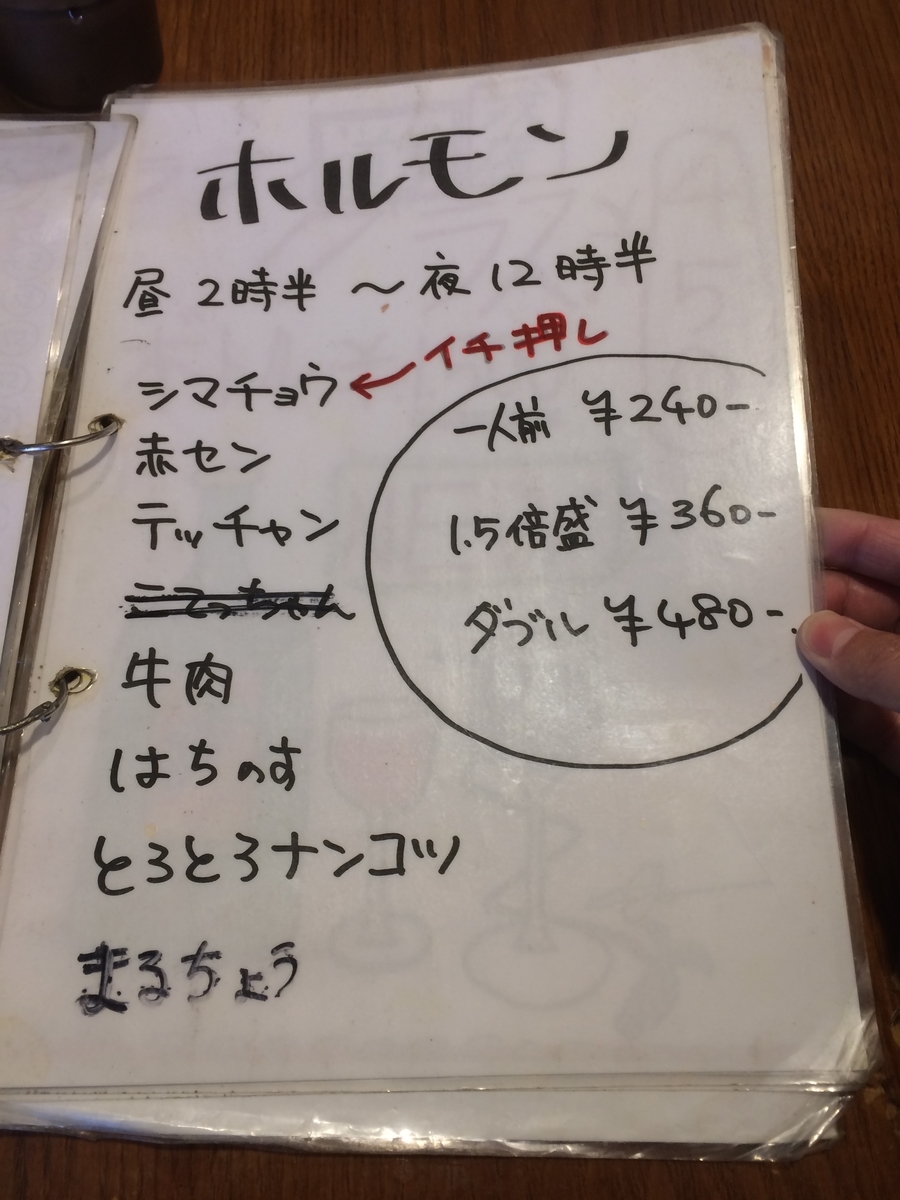 ホルモン
昼 2時半 〜 夜 12時半
シマチョウ ← イチ押し
赤セン
テッチャン
牛肉
はちのす
とろとろナンコツ
まるちょう
一人前 ¥240-
1.5倍盛 ¥360-
ダブル ¥480-